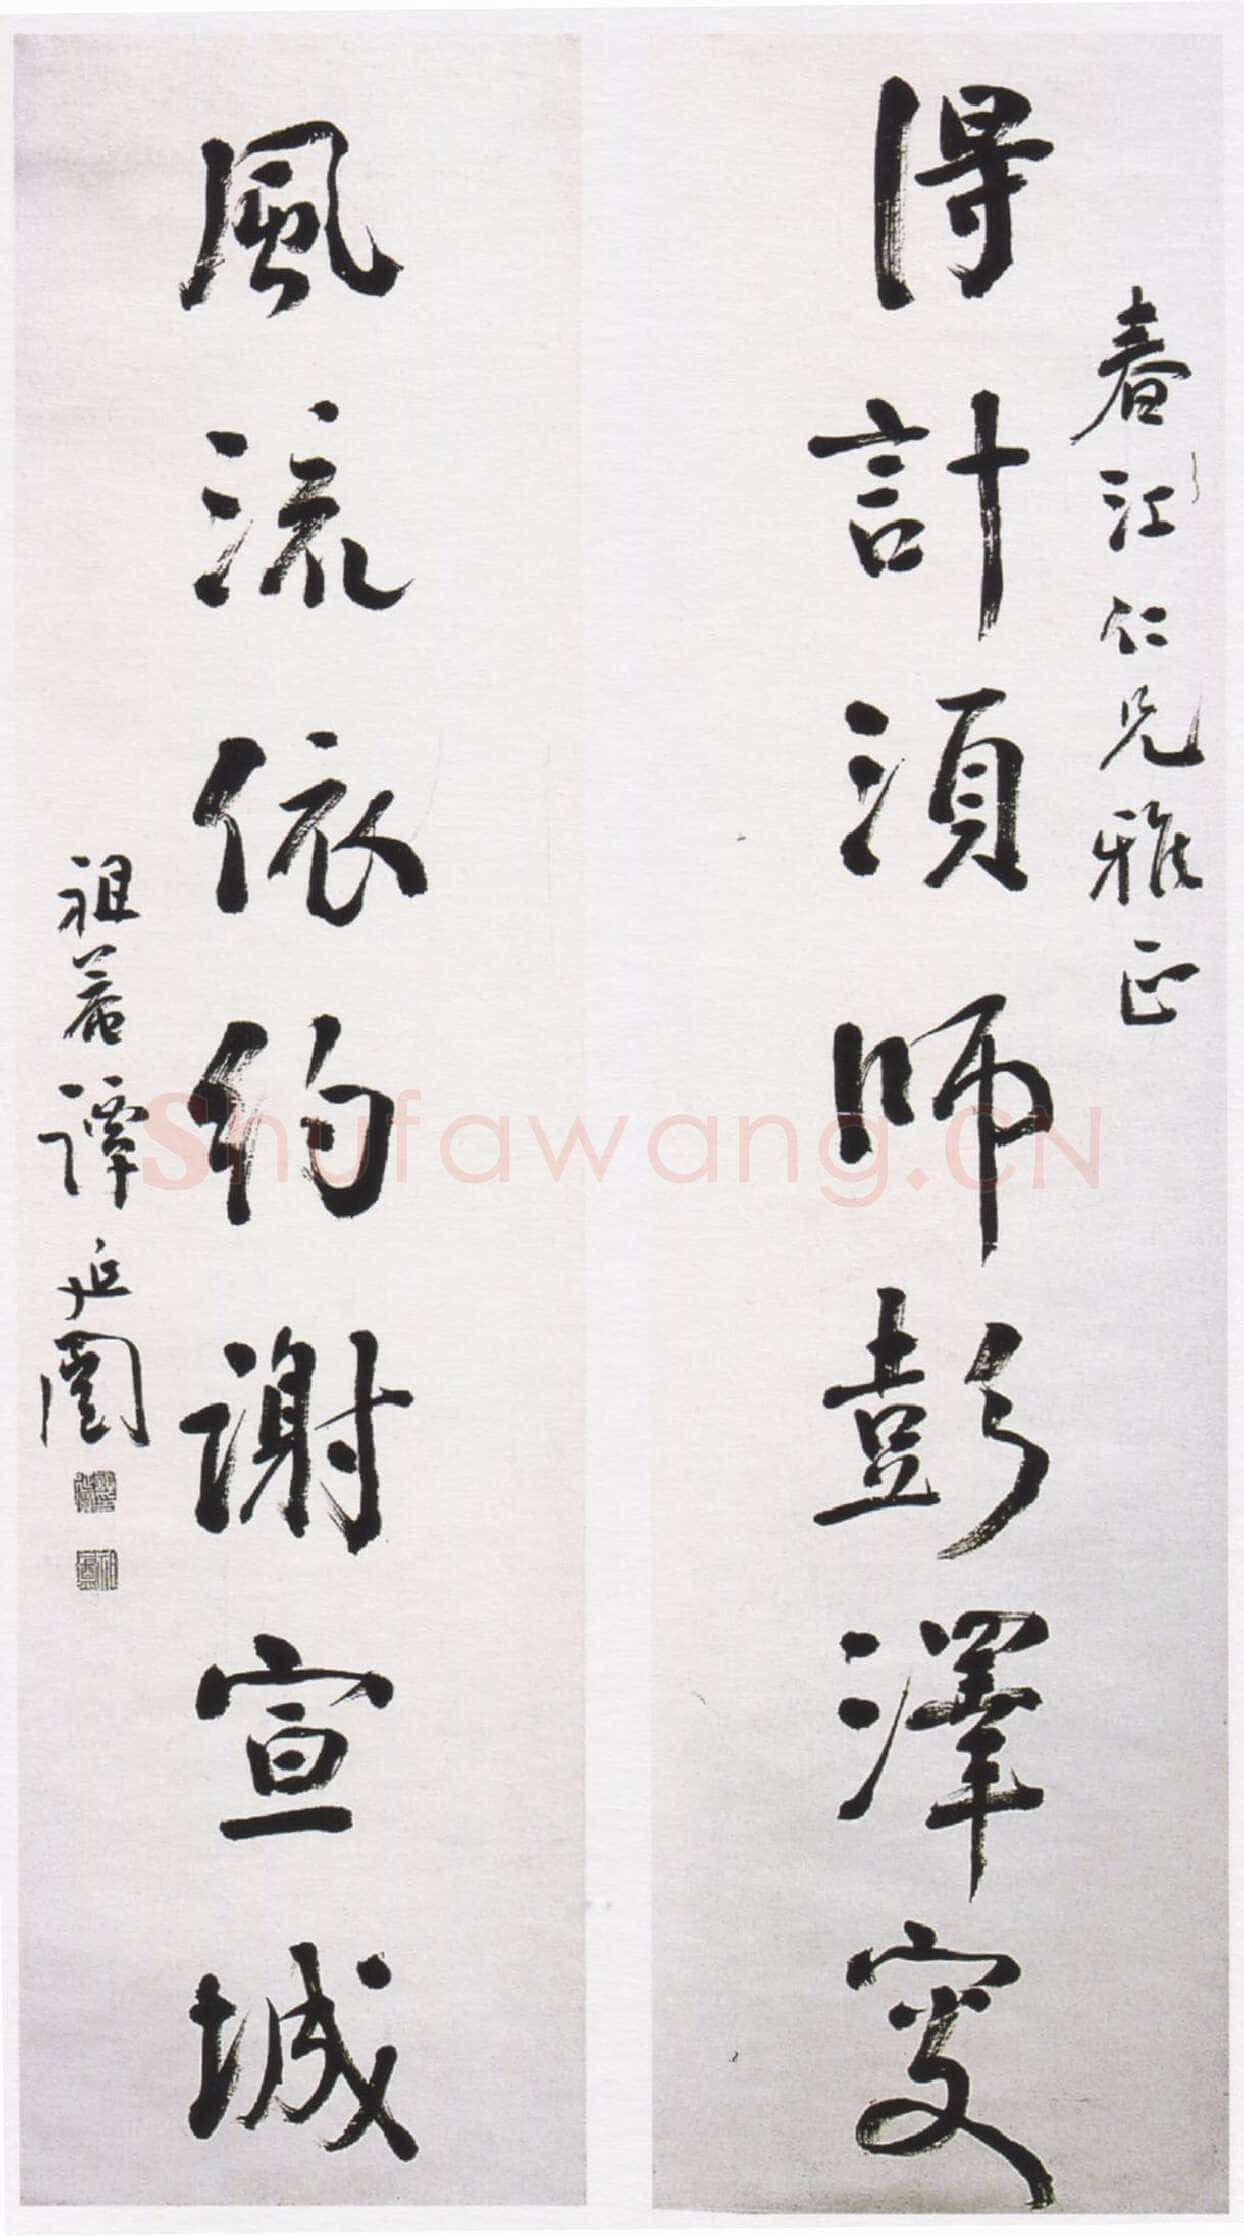 春江仁兄雅正
得計須師彭澤叟
風流依約謝宣城
祖菴譚延闓
Shufawang.CN